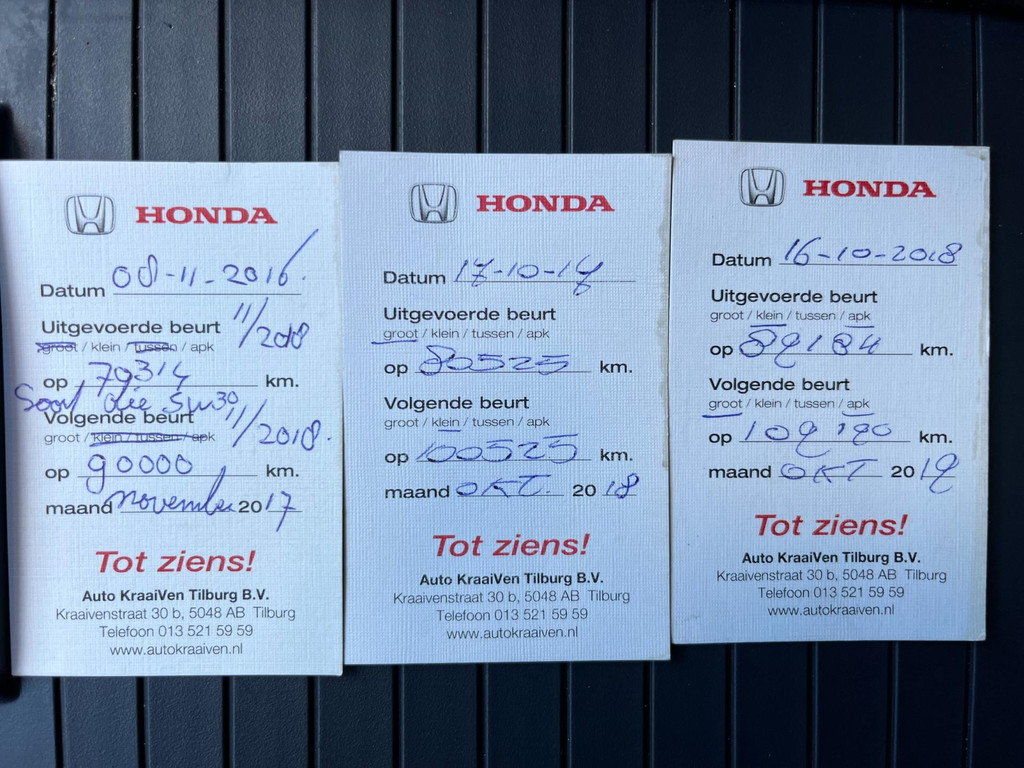 HONDA
Datum 08-11-2016.
Uitgevoerde beurt 11/2018
groot / klein / tussen / apk
op 79314 km.
Soort olie 5W30
Volgende beurt 11/2018.
groot / klein / tussen / apk
op 90000 km.
maand november 2017
Tot ziens!
Auto KraaiVen Tilburg B.V.
Kraaivenstraat 30 b, 5048 AB Tilburg
Telefoon 013 521 59 59
www.autokraaiven.nl
HONDA
Datum 17-10-17
Uitgevoerde beurt
groot / klein / tussen / apk
op 80525 km.
Volgende beurt
groot / klein / tussen / apk
op 100525 km.
maand OKT. 2018
Tot ziens!
Auto KraaiVen Tilburg B.V.
Kraaivenstraat 30 b, 5048 AB Tilburg
Telefoon 013 521 59 59
www.autokraaiven.nl
HONDA
Datum 16-10-2018
Uitgevoerde beurt
groot / klein / tussen / apk
op 89184 km.
Volgende beurt
groot / klein / tussen / apk
op 109190 km.
maand OKT 2019
Tot ziens!
Auto KraaiVen Tilburg B.V.
Kraaivenstraat 30 b, 5048 AB Tilburg
Telefoon 013 521 59 59
www.autokraaiven.nl